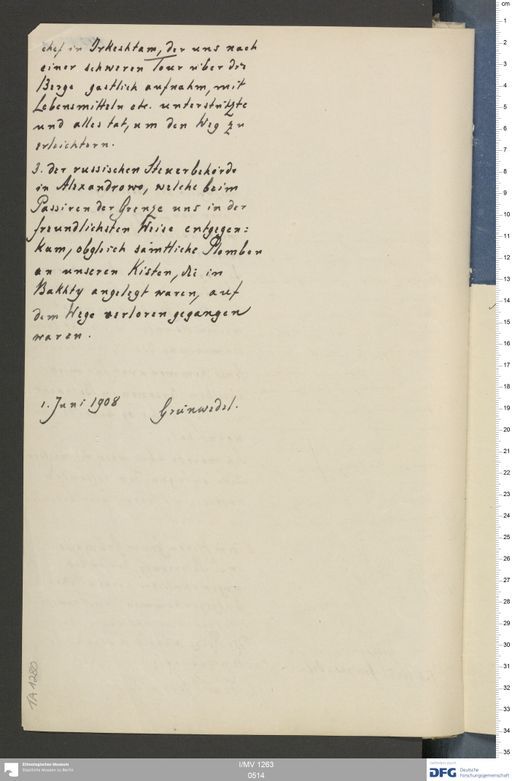 chef in Irkeshtam, der uns nach
einer schweren Tour über die
Berge gastlich aufnahm, mit
Lebensmitteln etc. unterstützte
und alles tat, um den Weg zu
erleichtern.
3. der russischen Steuerbehörde
in Alexandrowo, welche beim
Passiren der Grenze uns in der
freundlichsten Weise entgegen:
kam, obgleich sämtliche Plomben
an unseren Kisten, die in
Bakhty angelegt waren, auf
dem Wege verloren gegangen
waren.
1. Juni 1908 Grünwedel.
TA 1280
Ethnologisches Museum
Staatliche Museen zu Berlin
I/MV 1263
0514
DFG Deutsche
Forschungsgemeinschaft